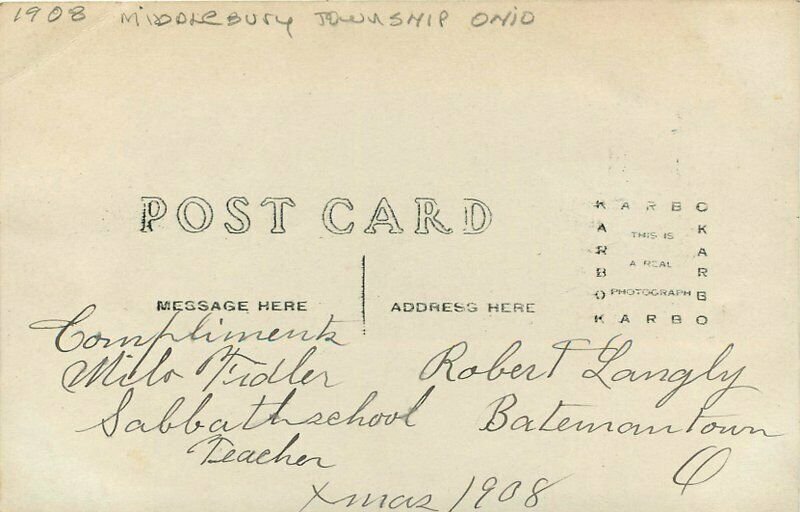 1908 MIDDLEBURY TOWNSHIP OHIO
POST CARD
KARBO
KARBO
KARBO
KARBO
THIS IS
A REAL
PHOTOGRAPH
MESSAGE HERE
ADDRESS HERE
Compliments
Milo Fidler
Sabbath school
Teacher
Robert Langly
Batemantown
O
Xmas 1908